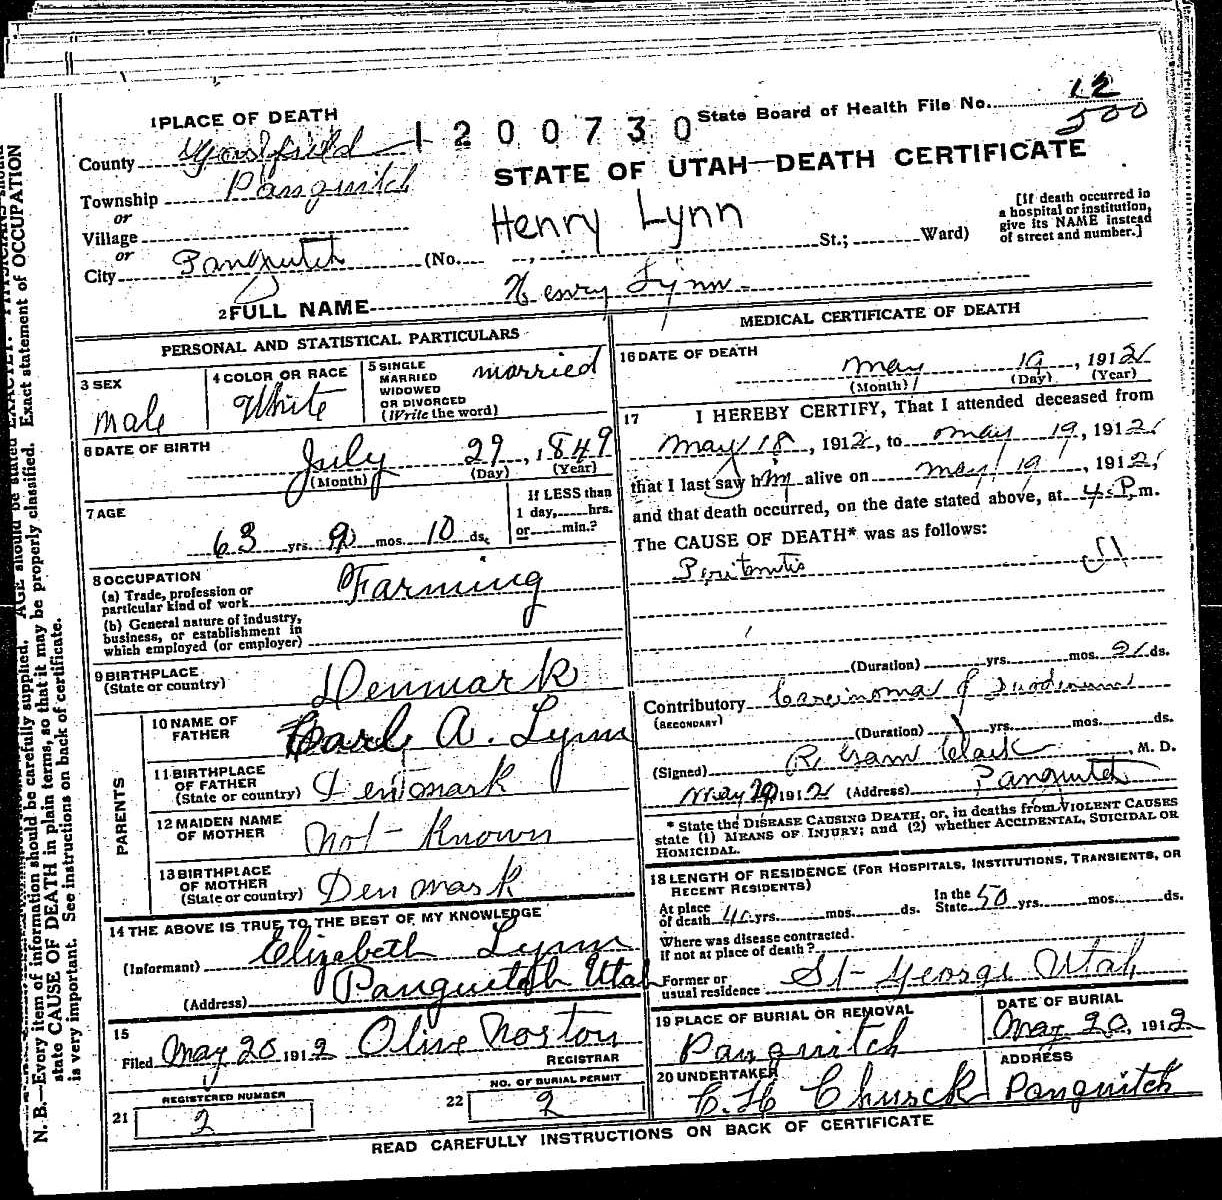 1 PLACE OF DEATH
State Board of Health File No. 12
500
1200730
County Garfield
STATE OF UTAH—DEATH CERTIFICATE
Township Panguitch
or
Village
or
Henry Lynn
[If death occurred in
a hospital or institution,
give its NAME instead
of street and number.]
City Panguitch (No. St.; Ward)
2 FULL NAME Henry Lynn
PERSONAL AND STATISTICAL PARTICULARS
3 SEX
Male
4 COLOR OR RACE
White
5 SINGLE
MARRIED
WIDOWED
OR DIVORCED
(Write the word)
married
6 DATE OF BIRTH
July 29, 1849
(Month) (Day) (Year)
7 AGE
63 yrs. 9 mos. 10 ds.
If LESS than
1 day, hrs.
or min.?
8 OCCUPATION
(a) Trade, profession or
particular kind of work
Farming
(b) General nature of industry,
business, or establishment in
which employed (or employer)
9 BIRTHPLACE
(State or country)
Denmark
PARENTS
10 NAME OF
FATHER
Carl A. Lynn
11 BIRTHPLACE
OF FATHER
(State or country)
Denmark
12 MAIDEN NAME
OF MOTHER
Not Known
13 BIRTHPLACE
OF MOTHER
(State or country)
Denmark
14 THE ABOVE IS TRUE TO THE BEST OF MY KNOWLEDGE
(Informant) Elizabeth Lynn
(Address) Panguitch Utah
15
Filed May 20 1912 Olive Norton
REGISTRAR
21 REGISTERED NUMBER
2
22 NO. OF BURIAL PERMIT
2
MEDICAL CERTIFICATE OF DEATH
16 DATE OF DEATH
May 19, 1912
(Month) (Day) (Year)
17 I HEREBY CERTIFY, That I attended deceased from
May 18, 1912, to May 19, 1912,
that I last saw him alive on May 19, 1912,
and that death occurred, on the date stated above, at 4 P. m.
The CAUSE OF DEATH* was as follows:
Peritonitis
(Duration) yrs. mos. ds.
Contributory Carcinoma of Duodenum
(SECONDARY)
(Duration) yrs. mos. ds.
(Signed) R. Garn Clark, M. D.
May 20 1912 (Address) Panguitch
* State the DISEASE CAUSING DEATH, or, in deaths from VIOLENT CAUSES
state (1) MEANS OF INJURY; and (2) whether ACCIDENTAL, SUICIDAL OR
HOMICIDAL.
18 LENGTH OF RESIDENCE (FOR HOSPITALS, INSTITUTIONS, TRANSIENTS, OR
RECENT RESIDENTS)
At place
of death yrs. mos. ds.
In the
State 50 yrs. mos. ds.
Where was disease contracted.
If not at place of death?
Former or
usual residence St George Utah
19 PLACE OF BURIAL OR REMOVAL
Panguitch
DATE OF BURIAL
May 20, 1912
20 UNDERTAKER
C. H. Church
ADDRESS
Panguitch
READ CAREFULLY INSTRUCTIONS ON BACK OF CERTIFICATE
N. B.—Every item of information should be carefully supplied. AGE should be stated EXACTLY. PHYSICIANS should
state CAUSE OF DEATH in plain terms, so that it may be properly classified. Exact statement of OCCUPATION
is very important. See instructions on back of certificate.